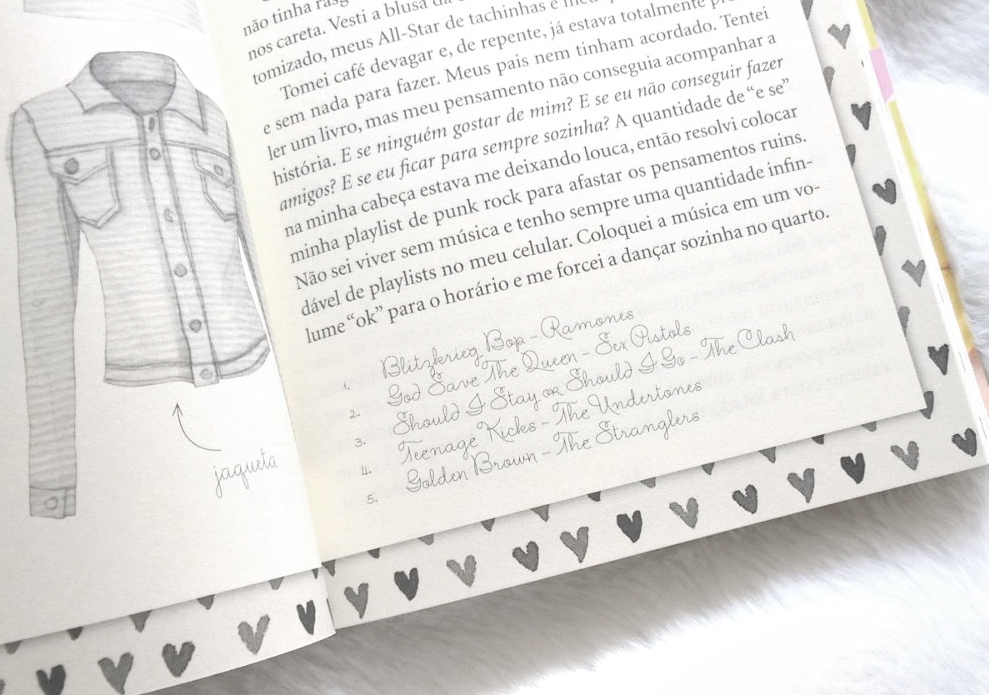 não tinha
nos careta. Vesti a blusa
tomizado, meus All-Star de tachinhas e
Tomei café devagar e, de repente, já estava totalmente
e sem nada para fazer. Meus pais nem tinham acordado. Tentei
ler um livro, mas meu pensamento não conseguia acompanhar a
história. E se ninguém gostar de mim? E se eu não conseguir fazer
amigos? E se eu ficar para sempre sozinha? A quantidade de “e se”
na minha cabeça estava me deixando louca, então resolvi colocar
minha playlist de punk rock para afastar os pensamentos ruins.
Não sei viver sem música e tenho sempre uma quantidade infin-
dável de playlists no meu celular. Coloquei a música em um vo-
lume “ok” para o horário e me forcei a dançar sozinha no quarto.
1. Blitzkrieg Bop - Ramones
2. God Save The Queen - Sex Pistols
3. Should I Stay or Should I Go - The Clash
4. Teenage Kicks - The Undertones
5. Golden Brown - The Stranglers
jaqueta